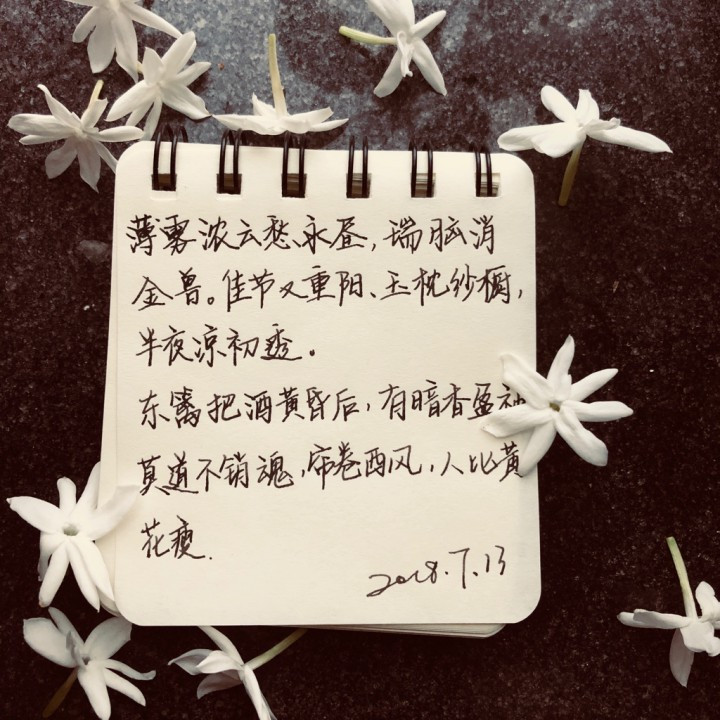 薄雾浓云愁永昼，瑞脑消
金兽。佳节又重阳、玉枕纱橱，
半夜凉初透。
东篱把酒黄昏后，有暗香盈袖
莫道不销魂，帘卷西风，人比黄
花瘦.
2018.7.13